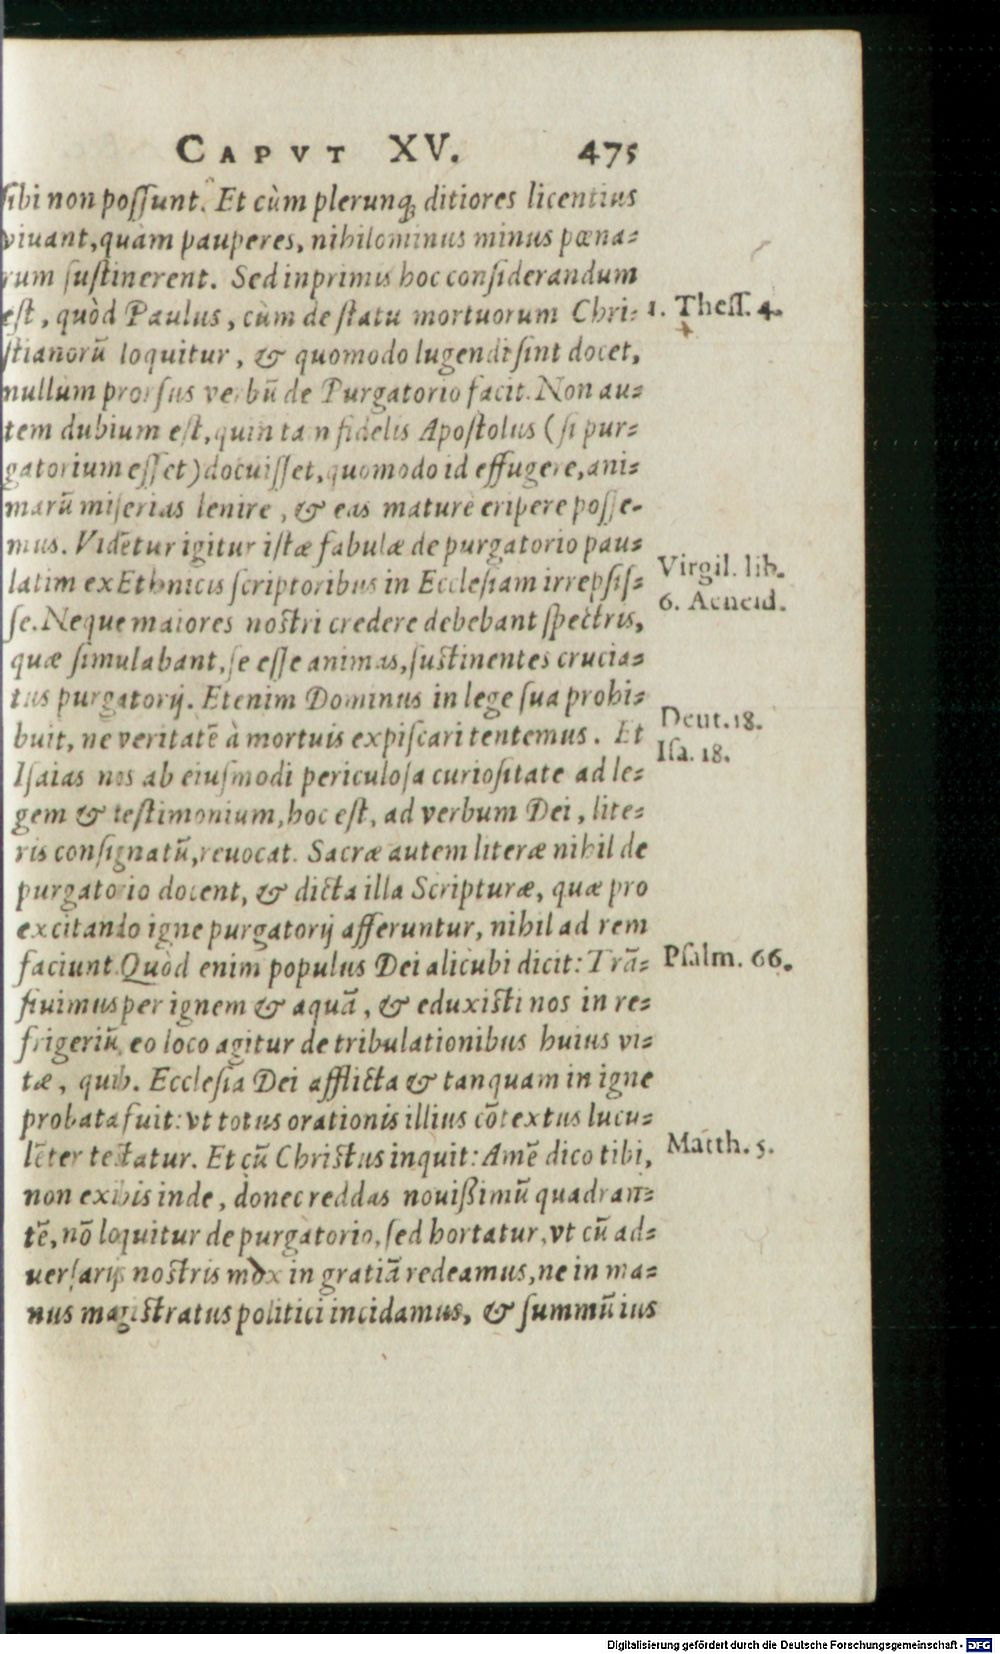 CAPVT XV. 475
sibi non possunt. Et cùm plerunq; ditiores licentius
viuant, quàm pauperes, nihilominus minus pœna=
rum sustinerent. Sed inprimis hoc considerandum
est, quòd Paulus, cùm de statu mortuorum Chri=
1. Thess. 4.
stianorũ loquitur, & quomodo lugendi sint docet,
nullum prorsus verbũ de Purgatorio facit. Non au=
tem dubium est, quin tam fidelis Apostolus (si pur=
gatorium esset) docuisset, quomodo id effugere, ani=
marũ miserias lenire, & eas maturè eripere posse-
mus. Videtur igitur istæ fabulæ de purgatorio pau=
latim ex Ethnicis scriptoribus in Ecclesiam irrepsis=
Virgil. lib.
6. Aeneid.
se. Neque maiores nostri credere debebant spectris,
quæ simulabant, se esse animas, sustinentes crucia=
tus purgatorij. Etenim Dominus in lege sua prohi=
buit, ne veritatẽ à mortuis expiscari tentemus. Et
Deut. 18.
Isa. 18.
Isaias nos ab eiusmodi periculosa curiositate ad le=
gem & testimonium, hoc est, ad verbum Dei, lite=
ris consignatũ, reuocat. Sacræ autem literæ nihil de
purgatorio docent, & dicta illa Scripturæ, quæ pro
excitando igne purgatorij afferuntur, nihil ad rem
faciunt. Quòd enim populus Dei alicubi dicit: Trã=
Psalm. 66.
siuimus per ignem & aquã, & eduxisti nos in re=
frigeriũ, eo loco agitur de tribulationibus huius vi=
tæ, quib. Ecclesia Dei afflicta & tanquam in igne
probata fuit: vt totus orationis illius cõtextus lucu=
lẽter testatur. Et cũ Christus inquit: Amẽ dico tibi,
Matth. 5.
non exibis inde, donec reddas nouißimũ quadran=
tẽ, nõ loquitur de purgatorio, sed hortatur, vt cũ ad=
uersarijs nostris mox in gratiã redeamus, ne in ma=
nus magistratus politici incidamus, & summũ ius
Digitalisierung gefördert durch die Deutsche Forschungsgemeinschaft - DFG